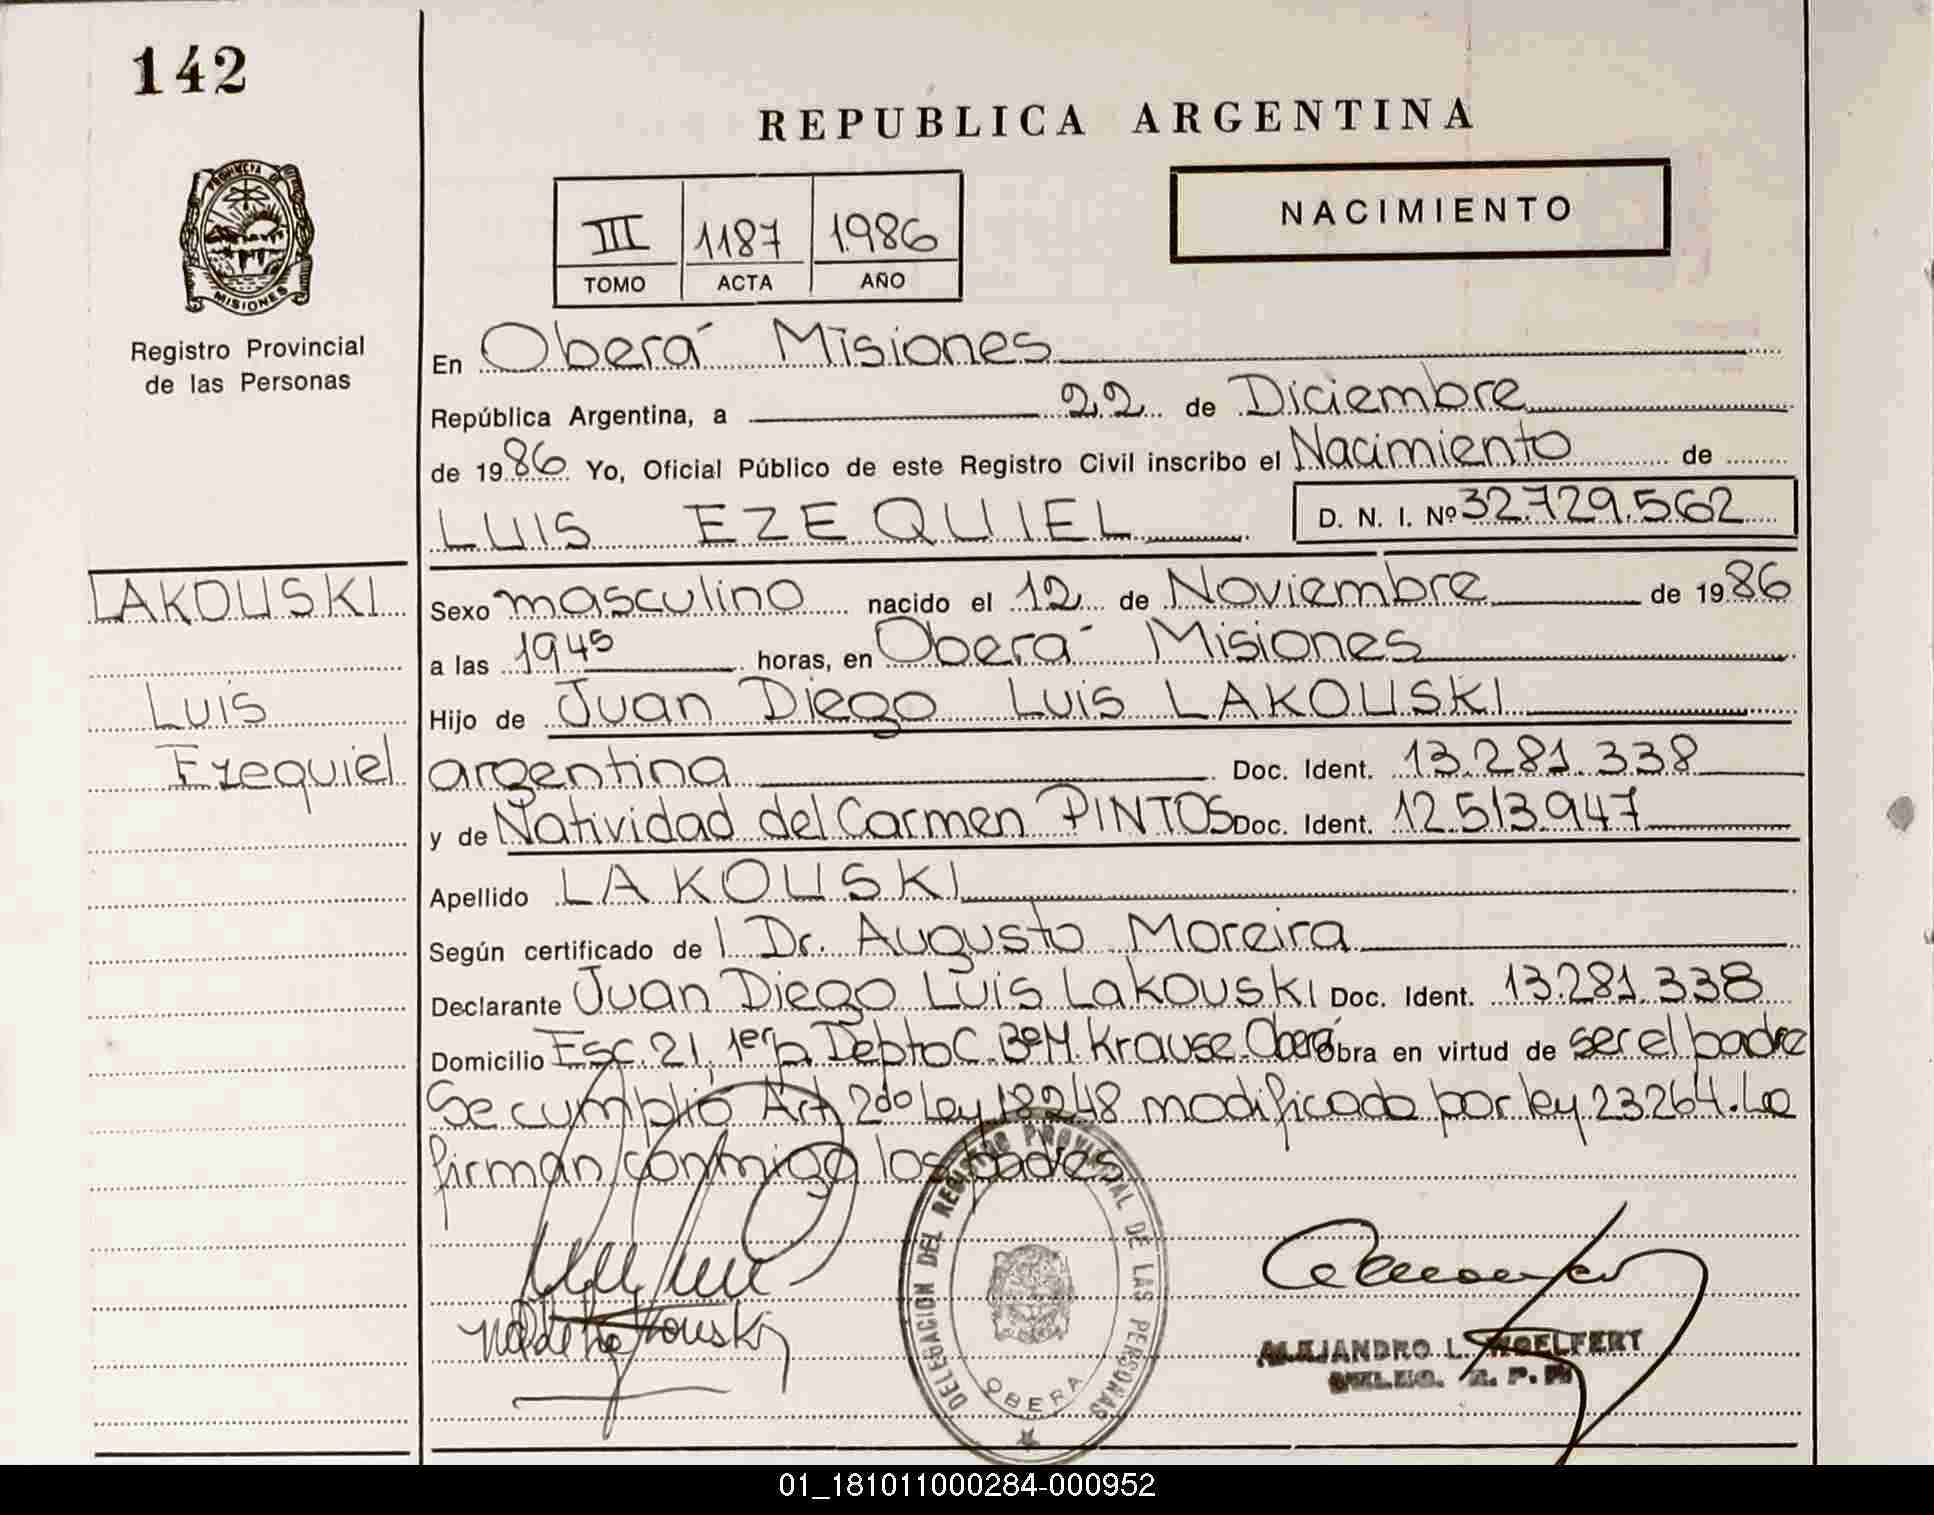 142
REPUBLICA ARGENTINA
PROVINCIA DE
MISIONES
Registro Provincial
de las Personas
III 1187 1986
TOMO ACTA AÑO
NACIMIENTO
En Oberá Misiones
República Argentina, a 22 de Diciembre
de 1986 Yo, Oficial Público de este Registro Civil inscribo el Nacimiento de
LUIS EZEQUIEL D. N. I. Nº 32.729.562
LAKOUSKI
Luis
Ezequiel
Sexo masculino nacido el 12 de Noviembre de 1986
a las 1945 horas, en Oberá Misiones
Hijo de Juan Diego Luis LAKOUSKI
argentina Doc. Ident. 13.281.338
y de Natividad del Carmen PINTOS Doc. Ident. 12.513.947
Apellido LAKOUSKI
Según certificado de l Dr. Augusto Moreira
Declarante Juan Diego Luis Lakouski Doc. Ident. 13.281.338
Domicilio Esc. 21, 1er p. Depto C. Bº M. Krause. Oberá Obra en virtud de ser el padre
Se cumplió Art 2do Ley 18248 modificado por ley 23264. La
firman conmigo los padres
DELEGACION DEL REGISTRO PROVINCIAL DE LAS PERSONAS
OBERA
ALEJANDRO L. WOELFERT
R. P. P.
01_181011000284-000952